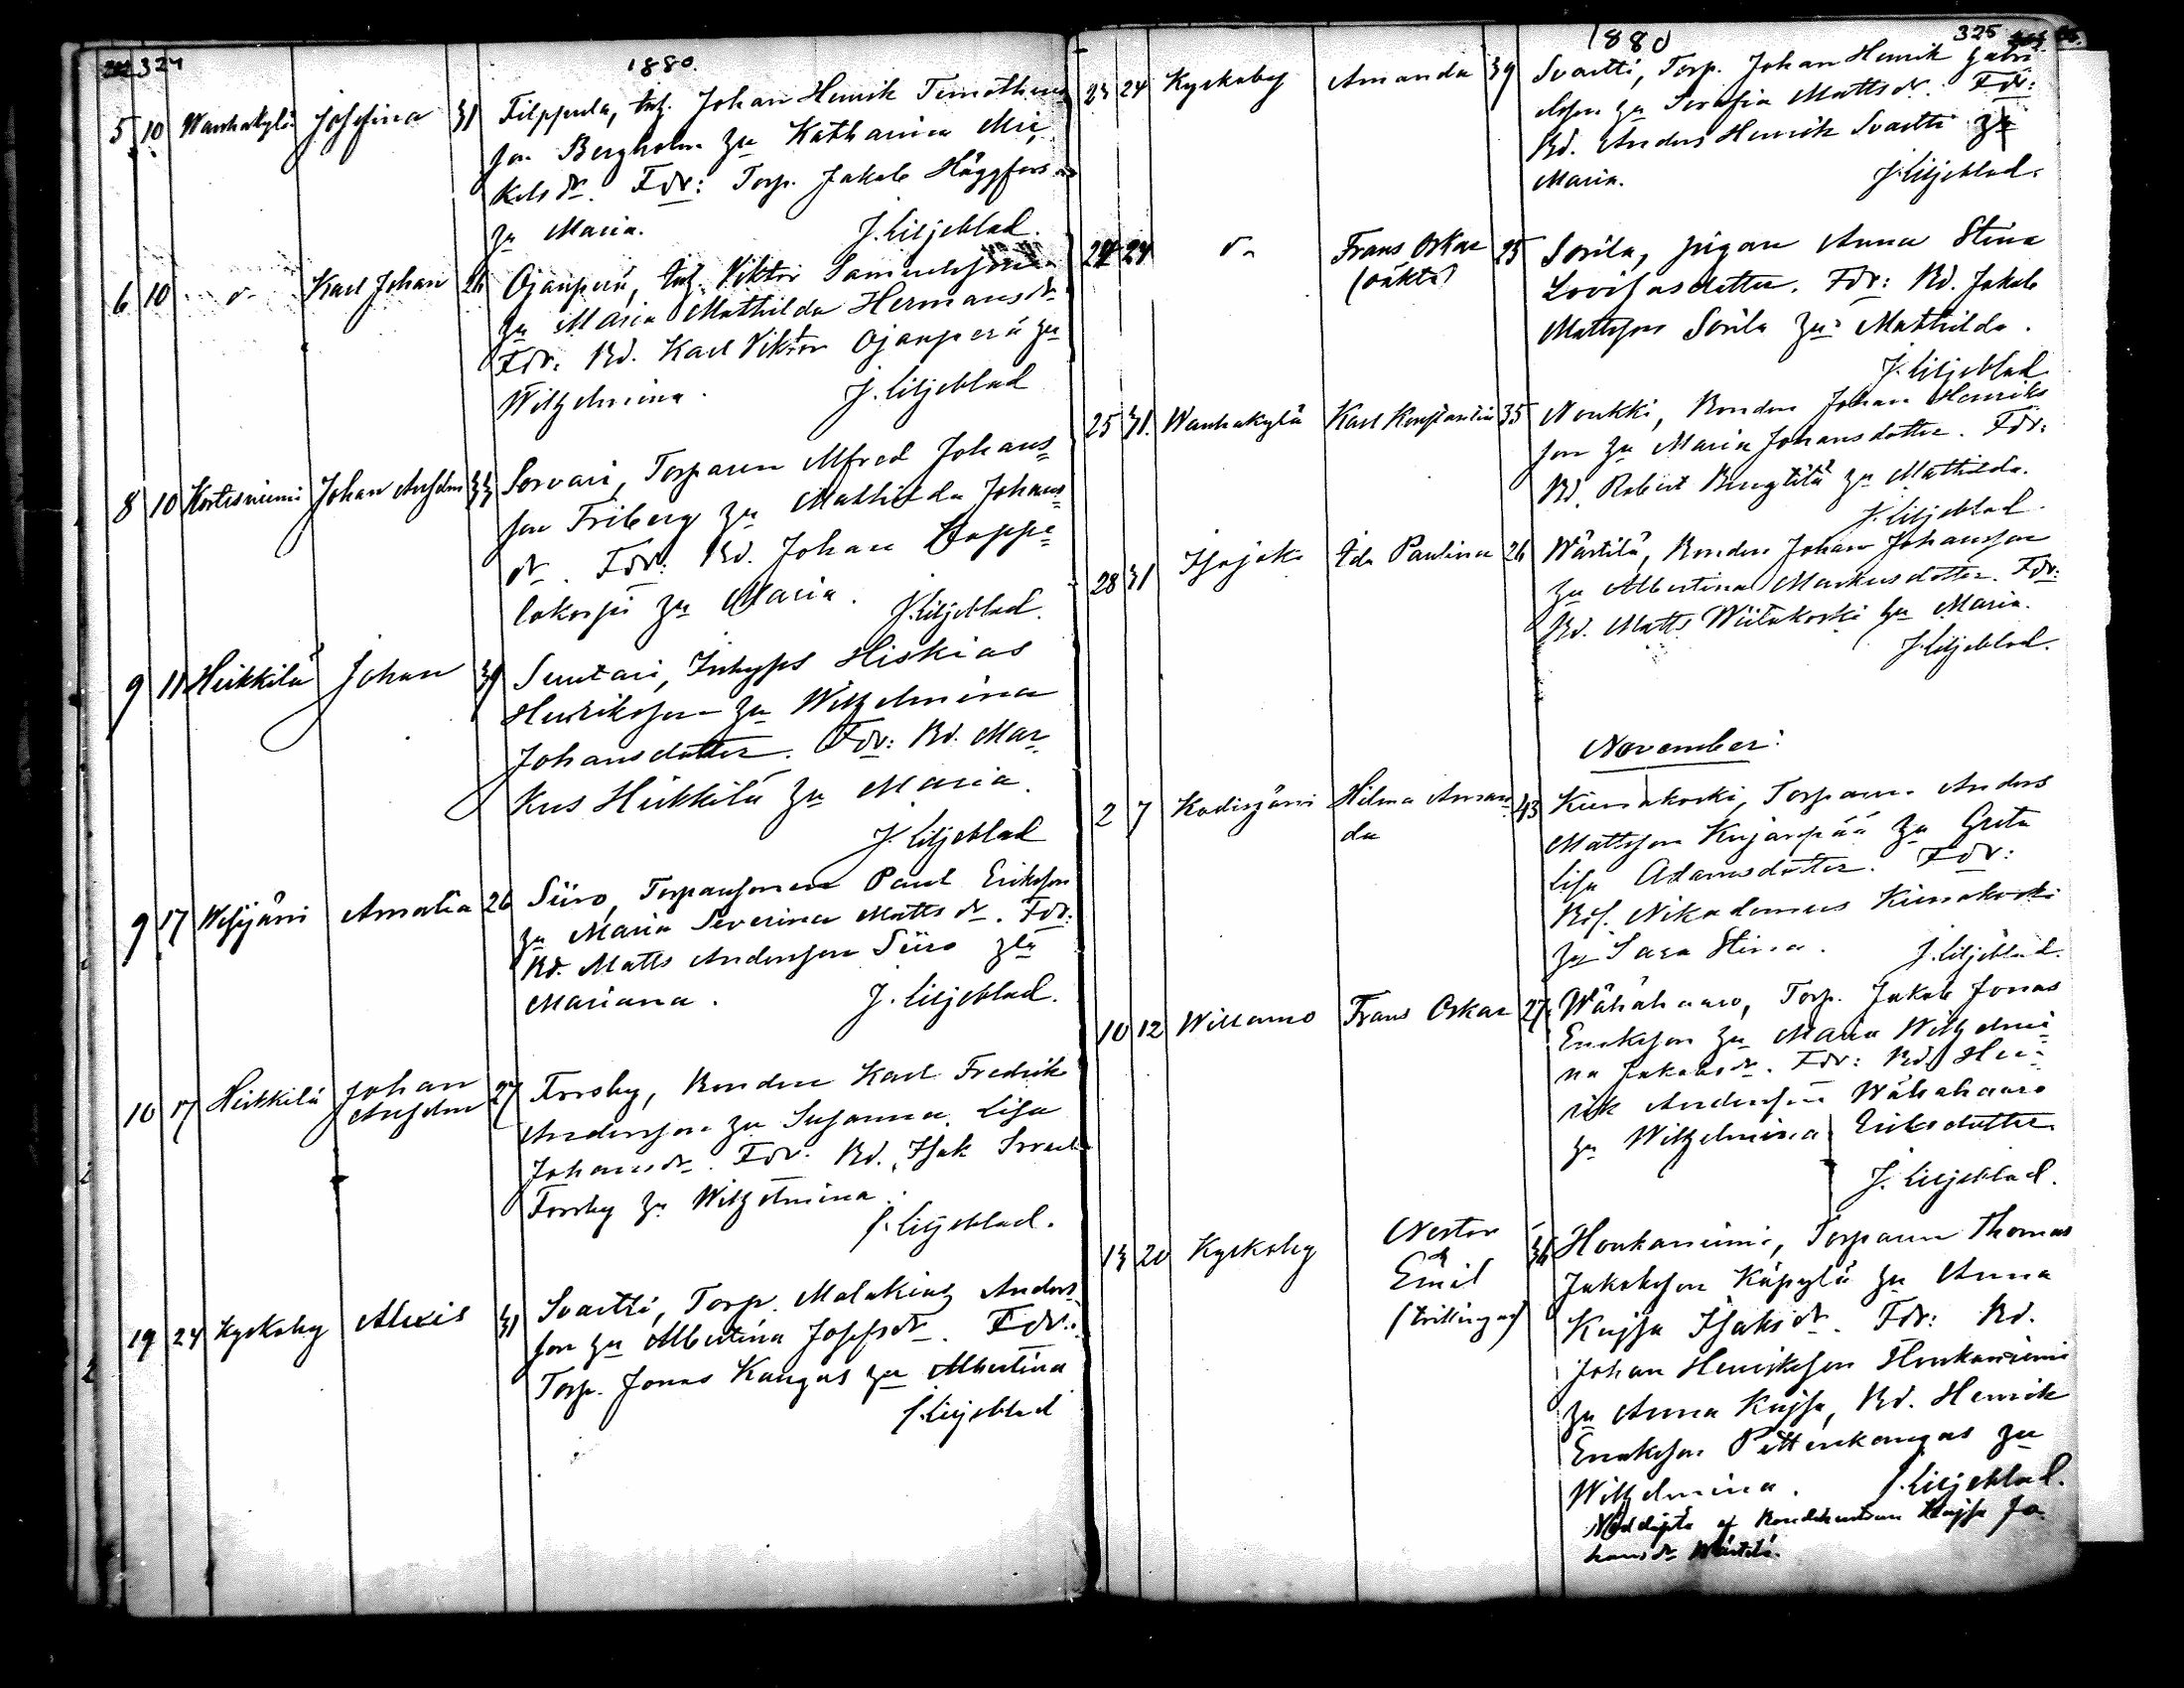 324
1880.
5 10 Wanhakylä Josefina 31 Filppula, Inh. Johan Henrik Timotheus
son Bergholm Hu Katharina Mi
kelsdr. Fdr: Torp. Jakob Häggfors
Hu Maria. J. Liljeblad.
6 10 do Karl Johan 26 Ojanperä, Inh. Viktor Samuelsson
Hu Maria Mathilda Hermansdr
Fdr: Bd. Karl Viktor Ojanperä Hu
Wilhelmina. J. Liljeblad
8 10 Kortesniemi Johan Anselm 33 Sorvari, Torparen Alfred Johans
son Friberg Hu Mathilda Johans
dr. Fdr: Bd. Johan Koppe
lokorpi Hu Maria. J. Liljeblad.
9 11 Heikkilä Johan 39 Suutari, Inhyses Hiskias
Henriksson Hu Wilhelmina
Johansdotter. Fdr: Bd. Mar
kus Heikkilä Hu Maria.
J. Liljeblad
9 17 Wesijärvi Amalia 26 Siiro, Torparsonen Paul Eriksson
Hu Maria Severina Mattsdr. Fdr:
Bd. Matts Andersson Siiro Hu
Mariana. J. Liljeblad.
10 17 Heikkilä Johan Anselm 27 Forsby, Bonden Karl Fredrik
Andersson Hu Susanna Lisa
Johansdr. Fdr. Bd. Isak
Forsby Hu Wilhelmina.
J. Liljeblad.
19 24 Kyrkoby Alexis 31 Svartti, Torp. Malakias Anders
son Hu Albertina Josefsdr. Fdr:
Torp. Jonas Kangas Hu Albertina
J. Liljeblad
1880
325
23 24 Kyrkoby Amanda 39 Svartti, Torp. Johan Henrik Gabri
elsson Hu Serafia Mattsdr. Fdr:
Bd. Anders Henrik Svartti Hu
Maria. J. Liljeblad.
24 24 do Frans Oskar 25 Sorila, pigan Anna Stina
(oäkta) Lovisasdotter. Fdr: Bd. Jakob
Mattsson Sorila Hu Mathilda.
J. Liljeblad
25 31. Wanhakylä Karl Konstantin 35 Noukki, Bonden Johan Henriks
son Hu Maria Johansdotter. Fdr:
Bd. Robert Hu Mathilda.
J. Liljeblad.
28 31 Isojoki Ida Paulina 26 Wärtilä, Bonden Johan Johansson
Hu Albertina Markusdotter. Fdr:
Bd. Matts Wiitakoski Hu Maria.
J. Liljeblad.
November:
2 7 Kodisjärvi Hilma Aman 43 Kivnakoski, Torparen Anders
da Mattsson Kujanpää Hu Greta
Lisa Adamsdotter. Fdr:
Bds. Nikodemus Kivnakoski
Hu Sara Stina. J. Liljeblad.
10 12 Willamo Frans Oskar 27 Wähähaaro, Torp. Jakob Jonas
Eriksson Hu Maria Wilhelmi
na Jakobsdr. Fdr: Bd. Hen
rik Andersson Wähähaaro
Hu Wilhelmina Eriksdotter
J. Liljeblad.
13 20 Kyrkoby Nestor 36 Honkaniemi, Torparen Thomas
& Jakobsson Käpylä Hu Anna
Emil Kajsa Isaksdr. Fdr: Bd.
(tvillingar) Johan Henriksson Honkaniemi
Hu Anna Kajsa, Bd. Henrik
Eriksson Pettenkangas Hu
Wilhelmina. J. Liljeblad.
Nöddöpta af Bondehustrun Kajsa Jo
hansdr Wärtilä.